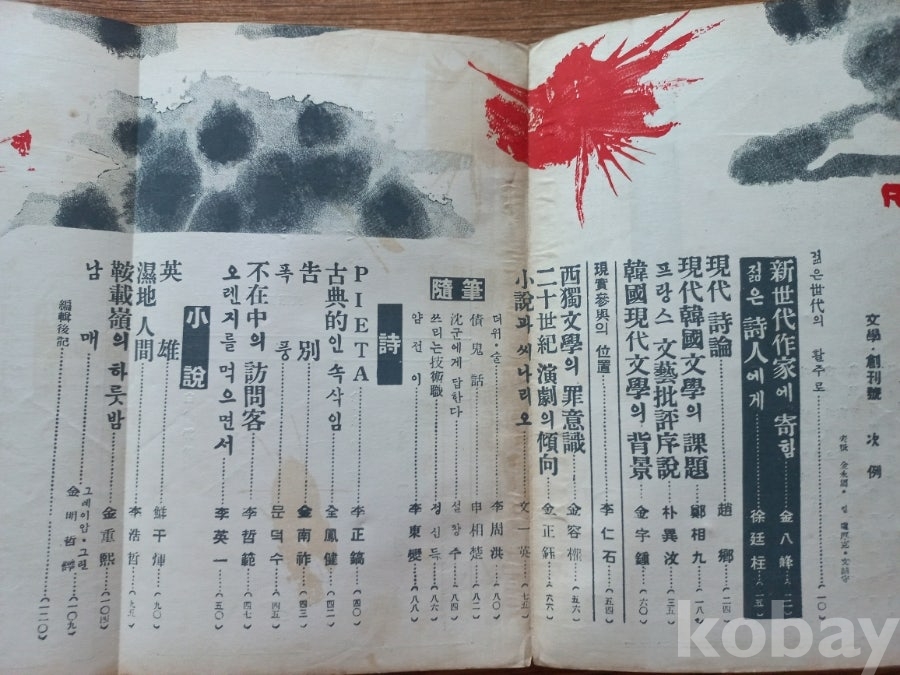 文學·創刊號 次例
젊은世代의 활주로 (一〇)
新世代作家에 寄함 金八峰
젊은 詩人에게 徐廷柱 (一五)
現代 詩論 趙鄕 (二四)
現代韓國文學의 課題 鄭相九 (一八)
프랑스 文藝批評序說 朴異汶 (三五)
韓國現代文學의 背景 金宇鍾 (六〇)
現實參與의 位置 李仁石 (五四)
西獨文學의 罪意識 金容權 (五六)
二十世紀 演劇의 傾向 金正鈺 (六六)
小說과 씨나리오 文一英 (七五)
隨筆
더위·술 李周洪 (八〇)
債鬼話 申相楚 (八二)
沈군에게 답한다 설창수 (八四)
쓰리는技術職 정신득 (八六)
얌전이 李東燮 (八八)
詩
PIETA 李正鎬 (四〇)
古典的인 속삭임 全鳳健 (四二)
告別 金南祚 (四三)
폭풍 문덕수 (四五)
不在中의 訪問客 李哲範 (四七)
오렌지를 먹으면서 李英一 (五〇)
小說
英雄 鮮于煇 (九〇)
濕地人間 李浩哲 (九五)
鞍載嶺의 하룻밤 金重熙 (一〇四)
남매 그레이암·그린 (一〇九)
編輯後記 (一二〇)
kobay